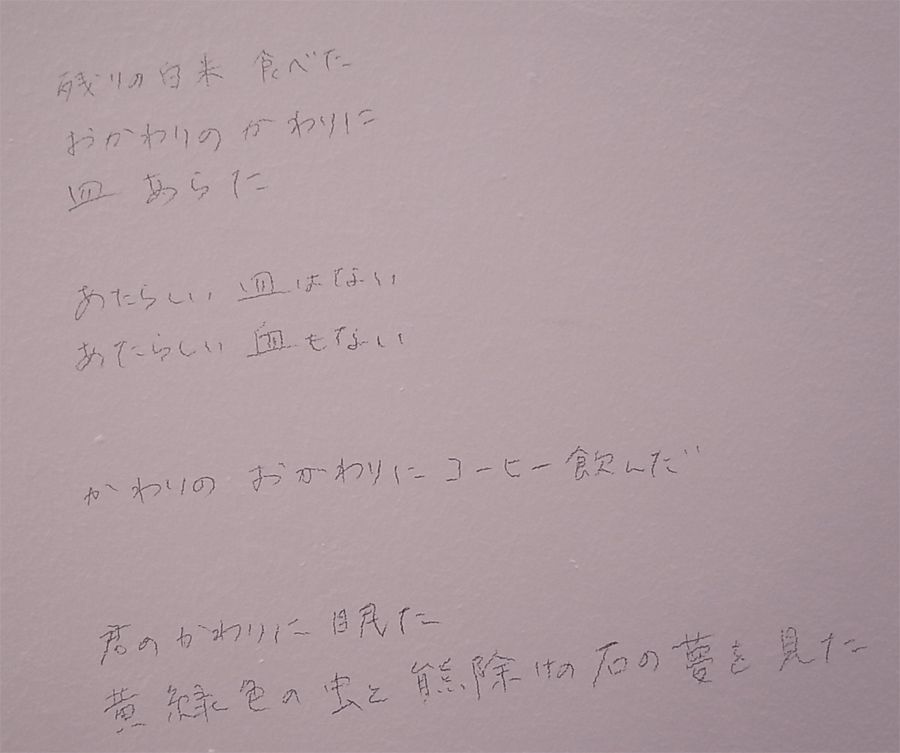 残りの白米 食べた
おかわりの かわりに
皿 あらった
あたらしい 皿はない
あたらしい 皿もない
かわりの おかわりに コーヒー飲んだ
君のかわりに 眠た
黄緑色の虫と 熊除けの石の夢を見た